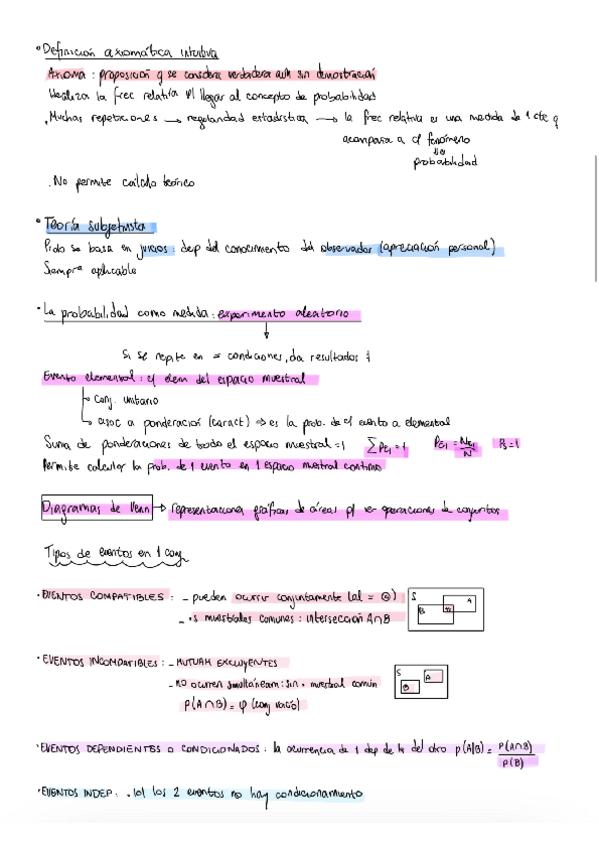 • Definición axiomática intuitiva
Axioma : proposición q se considera verdadera aun sin demostración
Utiliza la frec relativa p/ llegar al concepto de probabilidad
. Muchas repeticiones → regularidad estadística → la frec relativa es una medida de 1 cte q
acompaña a c/ fenómeno
probabilidad
. No permite cálculo teórico
• Teoría subjetivista
se basa en juicios : dep del conocimiento del observador (apreciación personal)
Siempre aplicable
• La probabilidad como medida : experimento aleatorio
Si se repite en = condiciones, da resultados ≠
Evento elemental : c/ elem del espacio muestral
conj. unitario
asoc a ponderación (caract) ⇒ es la prob. de c/ evento a elemental
Suma de ponderaciones de todo el espacio muestral = 1 ∑PEi = 1 PEi = NEi/N Ps = 1
Permite calcular la prob. de 1 evento en 1 espacio muestral continuo
Diagramas de Venn → representaciones gráficas de áreas p/ ver operaciones de conjuntos
Tipos de eventos en 1 conj.
• EVENTOS COMPATIBLES : - pueden ocurrir conjuntamente (al = )
S A B
- • s muestrales comunes : intersección A∩B
• EVENTOS INCOMPATIBLES : - MUTUAM EXCLUYENTES
S A B
- no ocurren simultáneam : sin • muestral común
P(A∩B) = φ (conj vacío)
• EVENTOS DEPENDIENTES O CONDICIONADOS : la ocurrencia de 1 dep de la del otro P(A|B) = P(A∩B)/P(B)
• EVENTOS INDEP : . los 2 eventos no hay condicionamiento